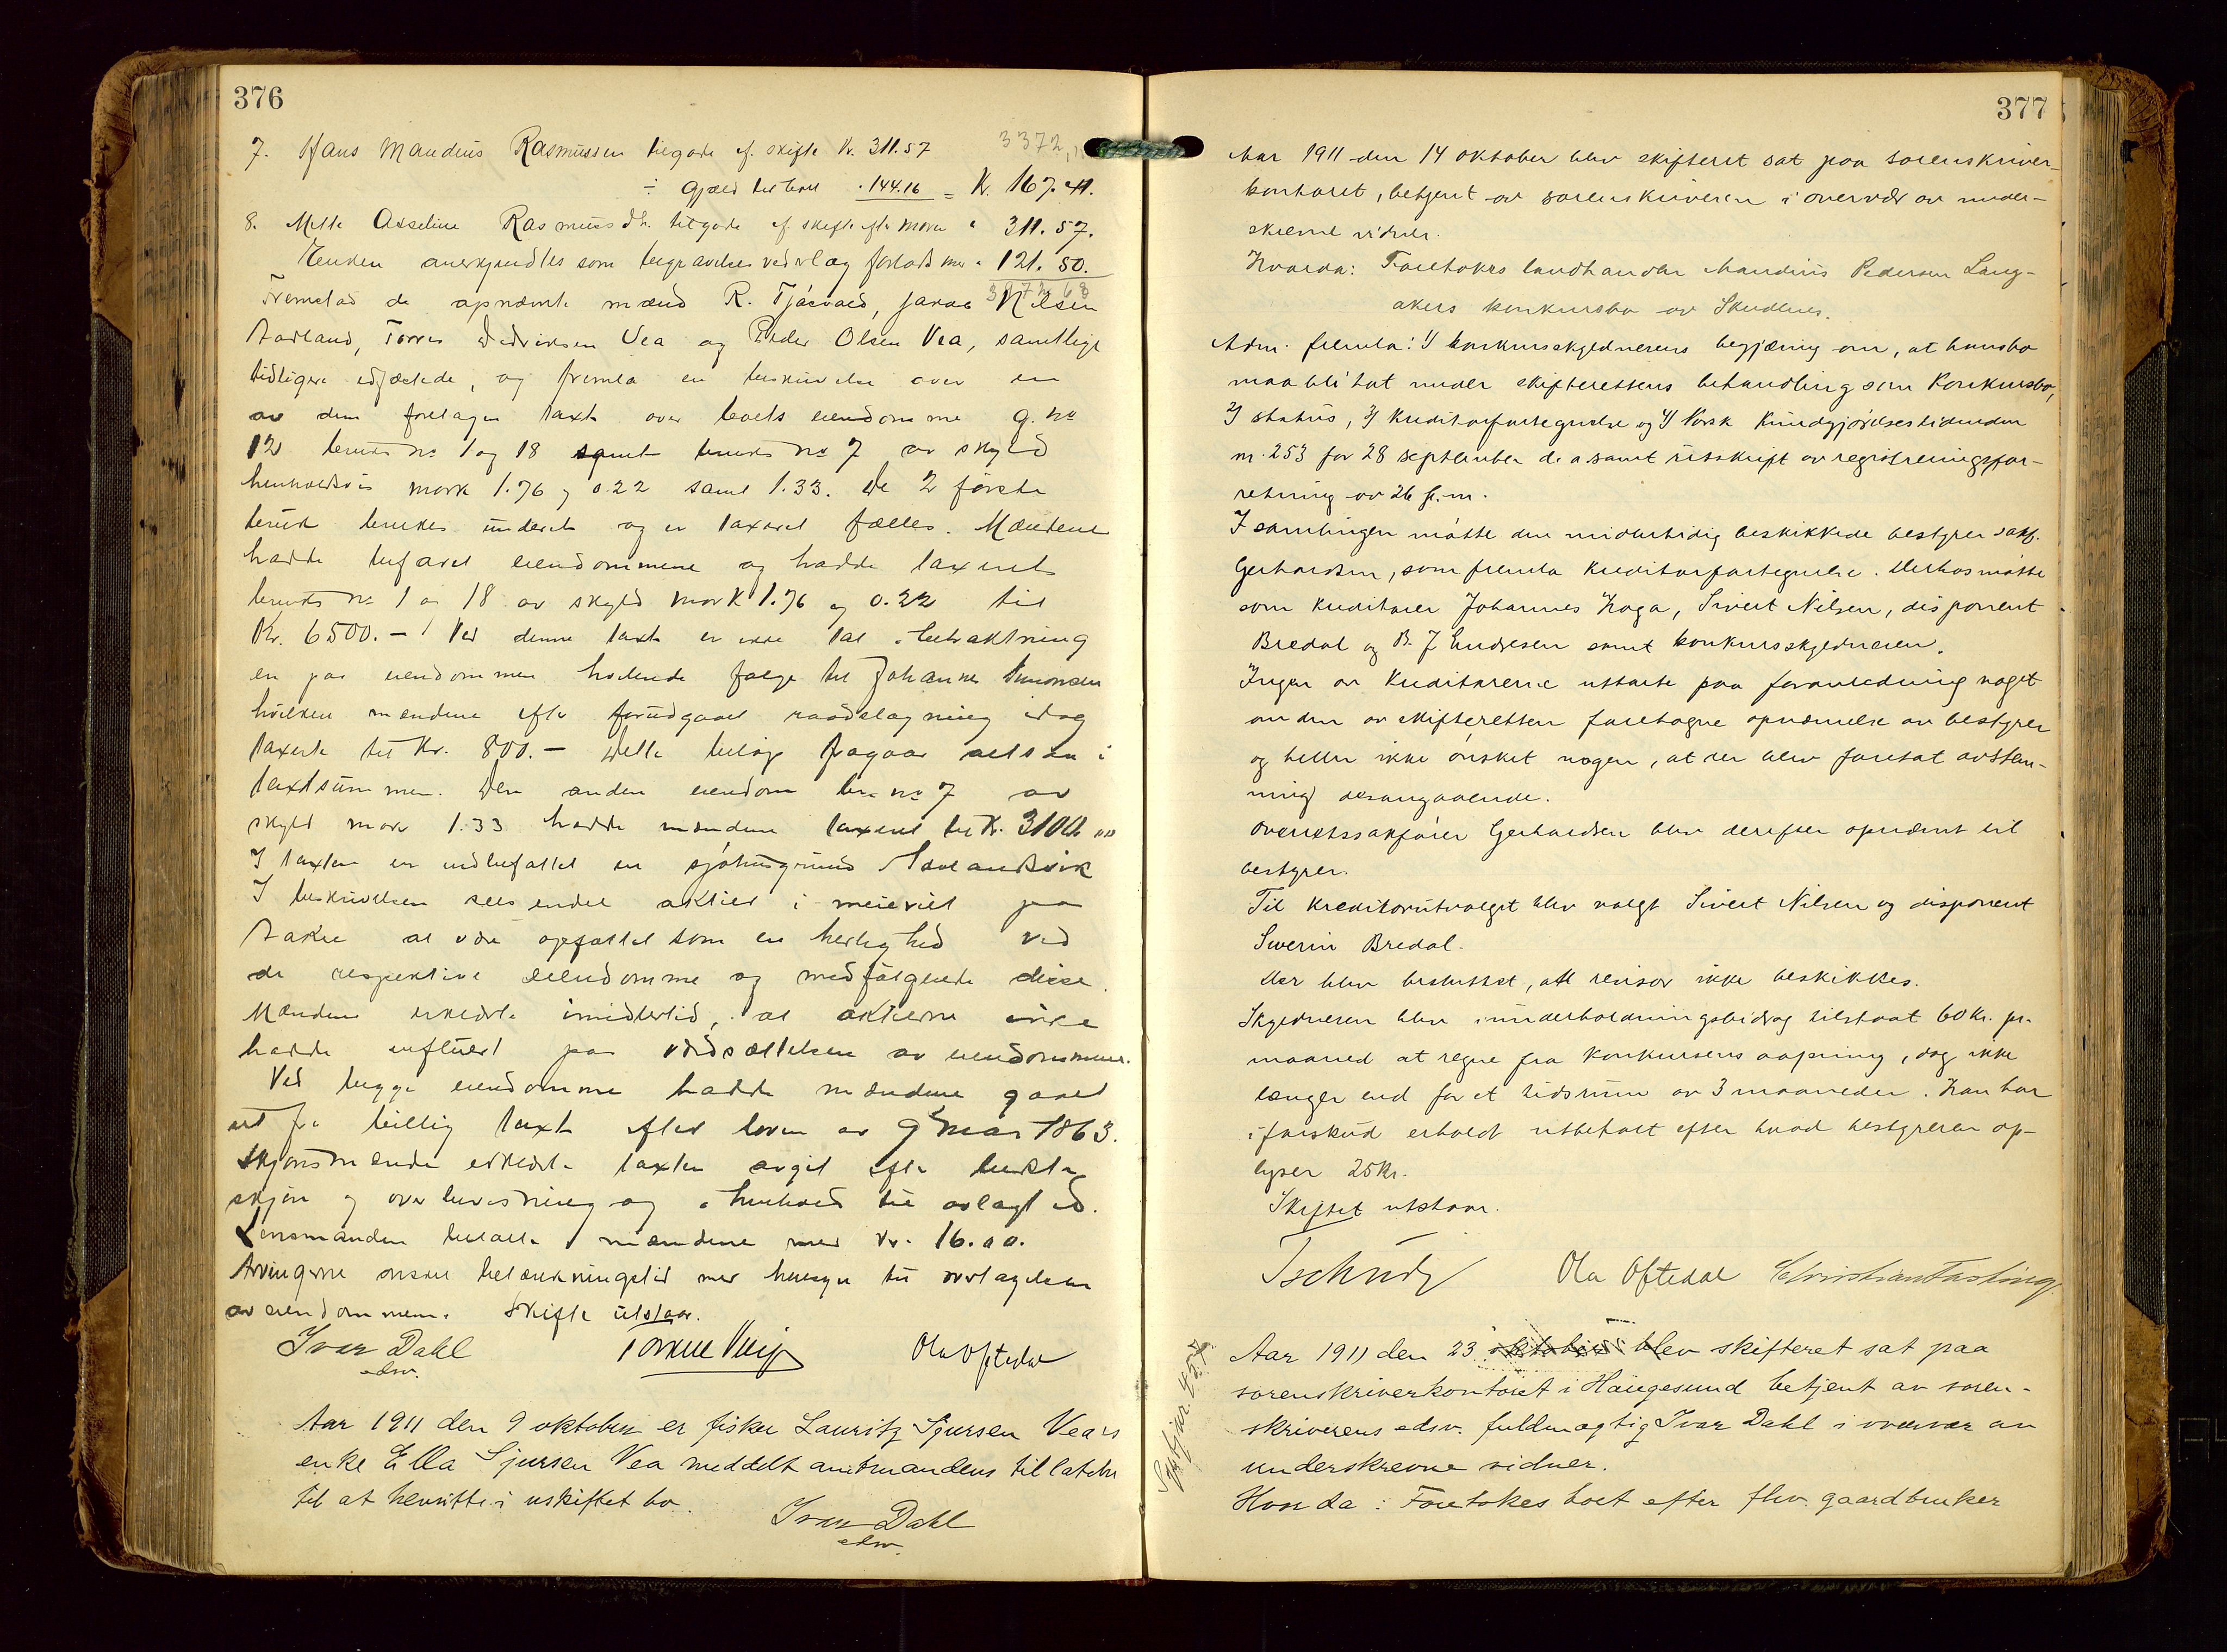 376
7. Hans Mandius Rasmussen tilgode ef. skifte Kr. 311.57 3372,
÷ Gjæld til boet " 144.16 = Kr. 167.41.
8. Mette Asseline Rasmussdt. tilgode ef. skifte efter moren " 311.57.
Enken anerkjendtes som begravelses vederlag forlods " 121.50.
Fremstod de opnævnte mænd R. Tjösvold, Nilsen
Aadland, Torres Didriksen Vea og Peder Olsen Vea, samtlige
tidligere edfæstede, og fremla en beskrivelse over en
av dem foretagen taxt over boets eiendomme g. no
12 bruks no 1 og 18 samt bruks no 7 av skyld
henholdsvis mark 1.76 og 0.22 samt 1.33. De 2 første
bruk brukes underet og er taxeret fælles. Mændene
hadde befaret eiendommene og hadde taxeret
bruks no 1 og 18 av skyld mark 1.76 og 0.22 til
Kr. 6500.- Ved denne taxt er ikke tat i betraktning
en paa eiendommen hvilende følge til Johannes Simonsen
hvilken mændene efter forudgaaet raadslagning idag
taxerte til Kr. 800.- Dette beløp fragaar altsaa i
taxtsummen. Den anden eiendom br. no 7 av
skyld mark 1.33 hadde mændene taxeret til Kr. 3100
I taxten er indbefattet en sjøhusgrund i Aadlandsvik
I beskrivelsen sees endel aktier i meieriet paa
Aakre at være opfattet som en herlighed ved
de respektive eiendomme og medfølgende disse.
Mændene erklærte imidlertid, at aktierne ikke
hadde influert paa værdsættelsen av eiendommene.
Ved begge eiendomme hadde mændene gaaet
ut fra billig taxt efter loven av 9 mai 1863.
Skjønsmændene erklærte taxten avgit efter bedste
skjøn og overbevisning og i henhold til avlagt ed.
Lensmanden betalte mændene med Kr. 16.00.
Arvingerne ønsket betænkningstid med hensyn til overtagelsen
av eiendommene. Skifte utstaar.
Ivar Dahl
edsv.
Ola Oftedal
Aar 1911 den 9 oktober er fisker Lauritz Sjursen Vea's
enke Ella Sjursen Vea meddelt amtmandens tillatelse
til at hensitte i uskiftet bo.
Ivar Dahl
edsv.
377
Aar 1911 den 14 oktober blev skifteret sat paa sorenskriver-
kontoret, betjent av sorenskriveren i overvær av under-
skrevne vidner.
Hvorda: Foretokes landhandler Mandius Pedersen Lang-
akers konkursbo av Skudenes.
Adm. fremla: 1) konkursskyldnerens begjæring om, at hans bo
maa bli tat under skifterettens behandling som konkursbo,
2) status, 3) kreditorfortegnelse og 4) Norsk Kundgjørelsestidende
nr. 253 for 28 september d. a. samt utskrift av registreringsfor-
retning av 26 f. m.
I samlingen møtte den midlertidig beskikkede bestyrer sakf.
Gerhardsen, som fremla kreditorfortegnelse. Derhos møtte
som kreditorer Johannes Haga, Sivert Nilsen, disponent
Bredal og B. J. Endresen samt konkursskyldneren.
Ingen av kreditorerne uttalte paa foranledning noget
om den av skifteretten foretagne opnævnelse av bestyrer
og heller ikke ønsket nogen, at der blev foretat avstem-
ning desangaaende.
Overretssakfører Gerhardsen blev derefter opnævnt til
bestyrer.
Til kreditorutvalget blev valgt Sivert Nilsen og disponent
Severin Bredal.
Der blev besluttet, at revisor ikke beskikkes.
Skyldneren blev i underholdningsbidrag tilstaat 60 kr. pr.
maaned at regne fra konkursens aapning, dog ikke
længer end for et tidsrum av 3 maaneder. Han har
i forskud erholdt utbetalt efter hvad bestyreren op-
lyser 25 kr.
Skiftet utstaar.
Tschudy Ola Oftedal Christian Fasting
Aar 1911 den 23 oktober blev skifteret sat paa
sorenskriverkontoret i Haugesund betjent av soren-
skriverens edsv. fuldmægtig Ivar Dahl i overvær av
underskrevne vidner.
Hvorda: Foretokes boet efter fhv. gaardbruker